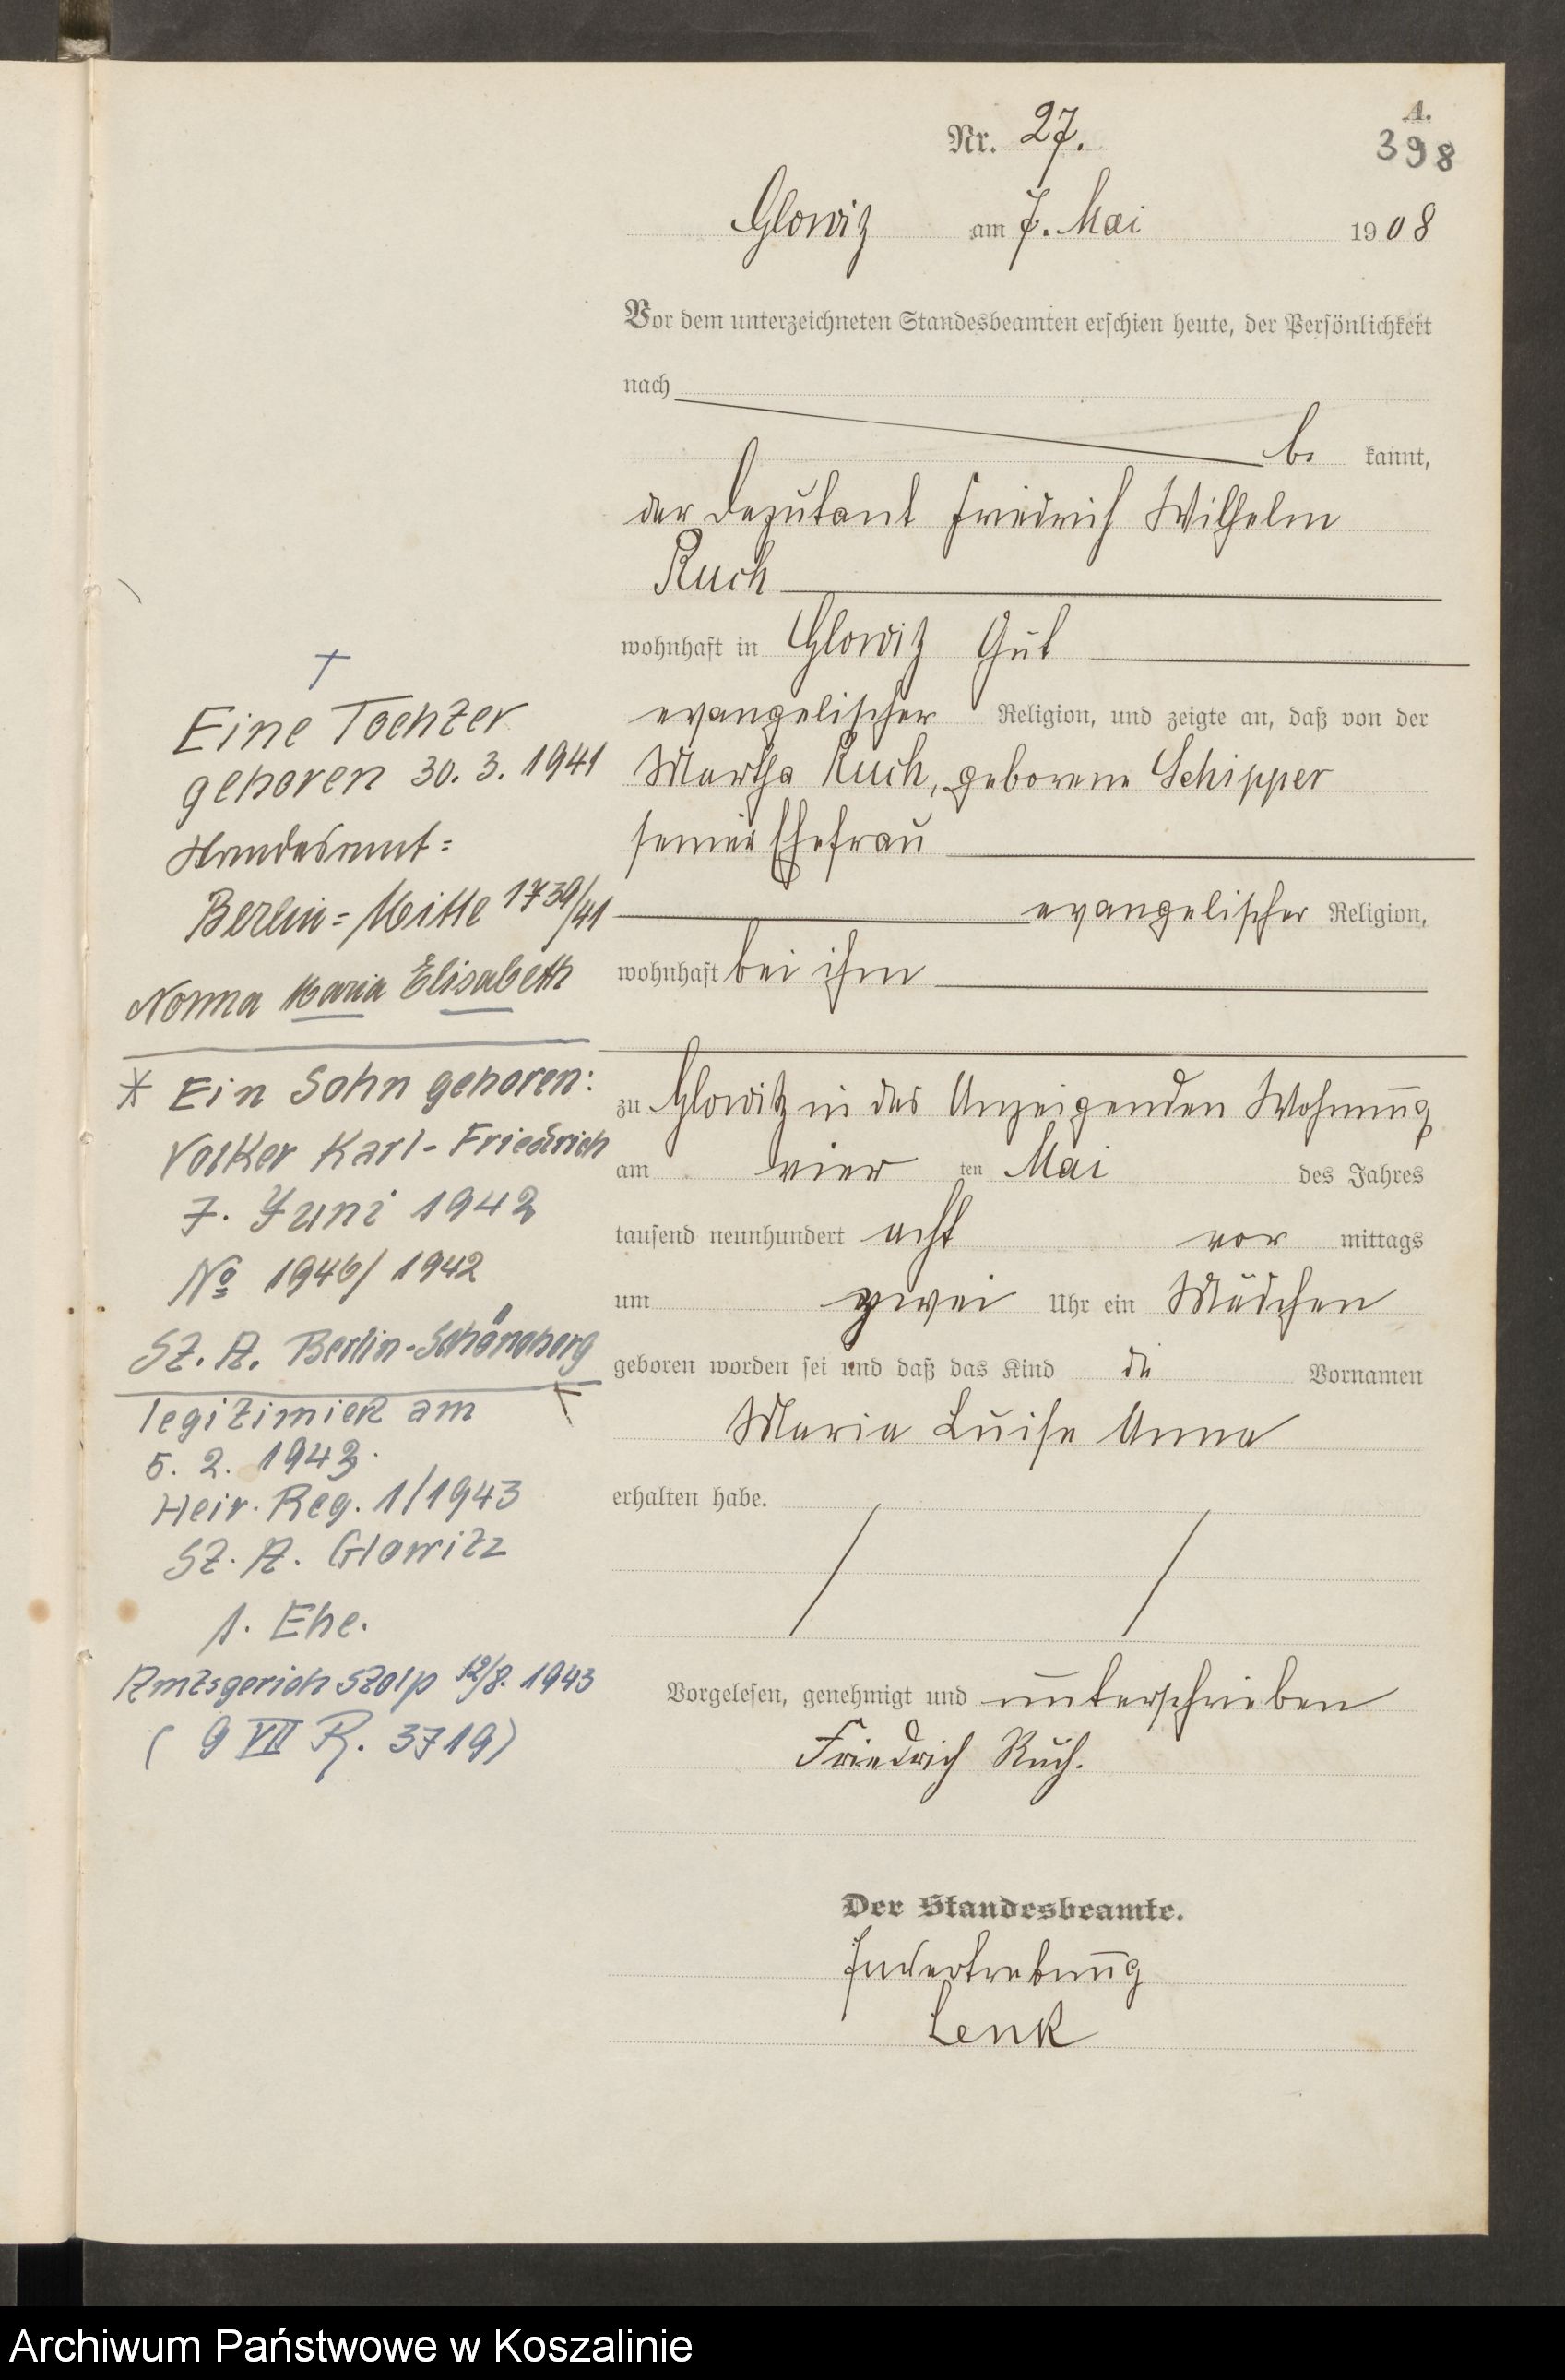 A.
398
Nr. 27.
Glowitz am 7. Mai 1908
Vor dem unterzeichneten Standesbeamten erschien heute, der Persönlichkeit
nach
be kannt,
der Deputant Friedrich Wilhelm
Ruch
wohnhaft in Glowitz Gut
evangelischer Religion, und zeigte an, daß von der
Martha Ruch, geborene Schipper
seiner Ehefrau
evangelischer Religion,
wohnhaft bei ihm
zu Glowitz in des Anzeigenden Wohnung
am vier ten Mai des Jahres
tausend neunhundert acht vor mittags
um zwei Uhr ein Mädchen
geboren worden sei und daß das Kind die Vornamen
Maria Luise Anna
erhalten habe.
Vorgelesen, genehmigt und unterschrieben
Friedrich Ruch.
Der Standesbeamte.
In Vertretung
Lenk
Eine Tochter
geboren 30. 3. 1941
Standesamt=
Berlin=Mitte 1739/41
Norma Maria Elisabeth
* Ein Sohn geboren:
Volker Karl-Friedrich
7. Juni 1942
No 1946/1942
St. A. Berlin-Schöneberg
legitimiert am
5. 2. 1943.
Heir. Reg. 1/1943
St. A. Glowitz
1. Ehe.
Amtsgericht Stolp 12/8. 1943
(9 VII R. 3719)
Archiwum Państwowe w Koszalinie